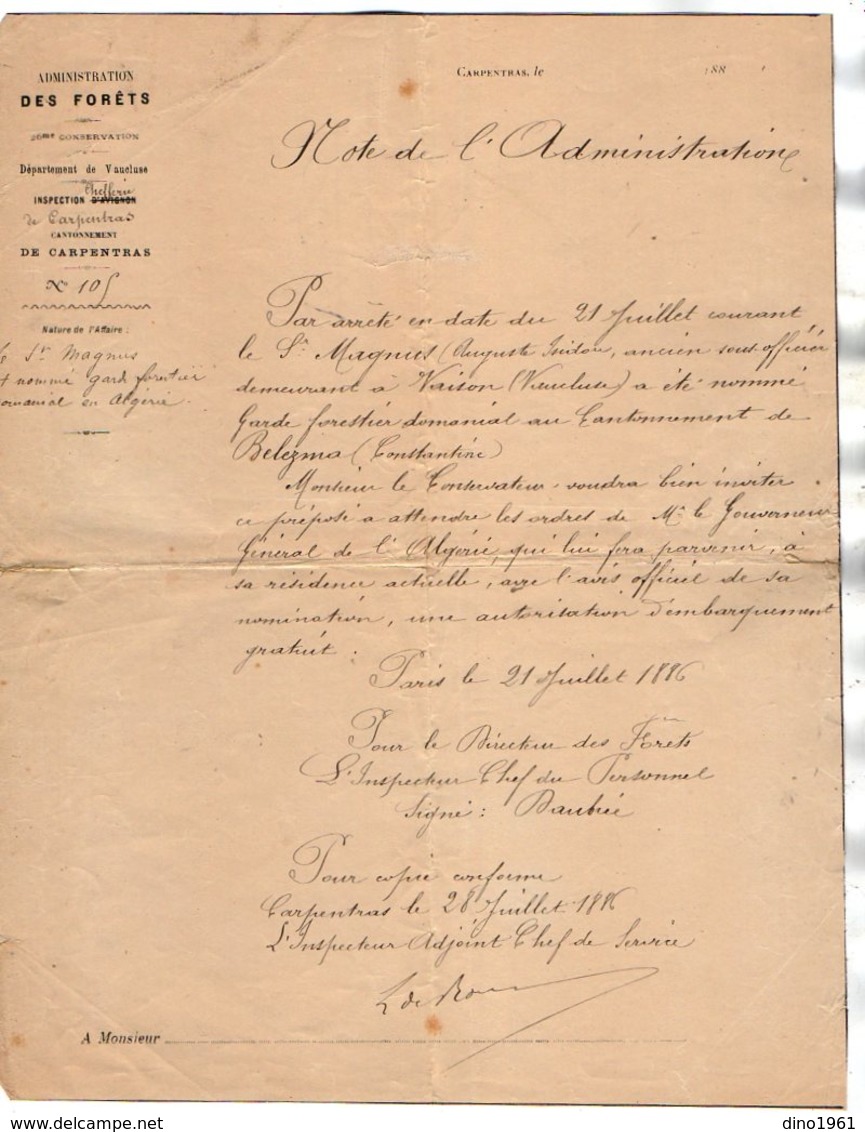 ADMINISTRATION
DES FORÊTS
26me CONSERVATION
Département de Vaucluse
Chefferie
INSPECTION D'AVIGNON
de Carpentras
CANTONNEMENT
DE CARPENTRAS
No 105
Nature de l'Affaire :
Le Sr Magnus
est nommé garde forestier
domanial en Algérie.
CARPENTRAS, le 188
Note de l'Administration
Par arrêté en date du 21 Juillet courant
le Sr Magnus (Auguste Isidore, ancien sous-officier
demeurant à Vaison (Vaucluse) a été nommé
Garde forestier domanial au Cantonnement de
Belezma (Constantine)
Monsieur le Conservateur voudra bien inviter
ce préposé à attendre les ordres de Mr le Gouverneur
Général de l'Algérie, qui lui fera parvenir, à
sa résidence actuelle, avec l'avis officiel de sa
nomination, une autorisation d'embarquement
gratuit.
Paris le 21 Juillet 1886
Pour le Directeur des Forêts
L'Inspecteur Chef du Personnel
Signé : Daubrée
Pour copie conforme
Carpentras le 28 Juillet 1886
L'Inspecteur Adjoint Chef de Service
L de
A Monsieur
dino1961